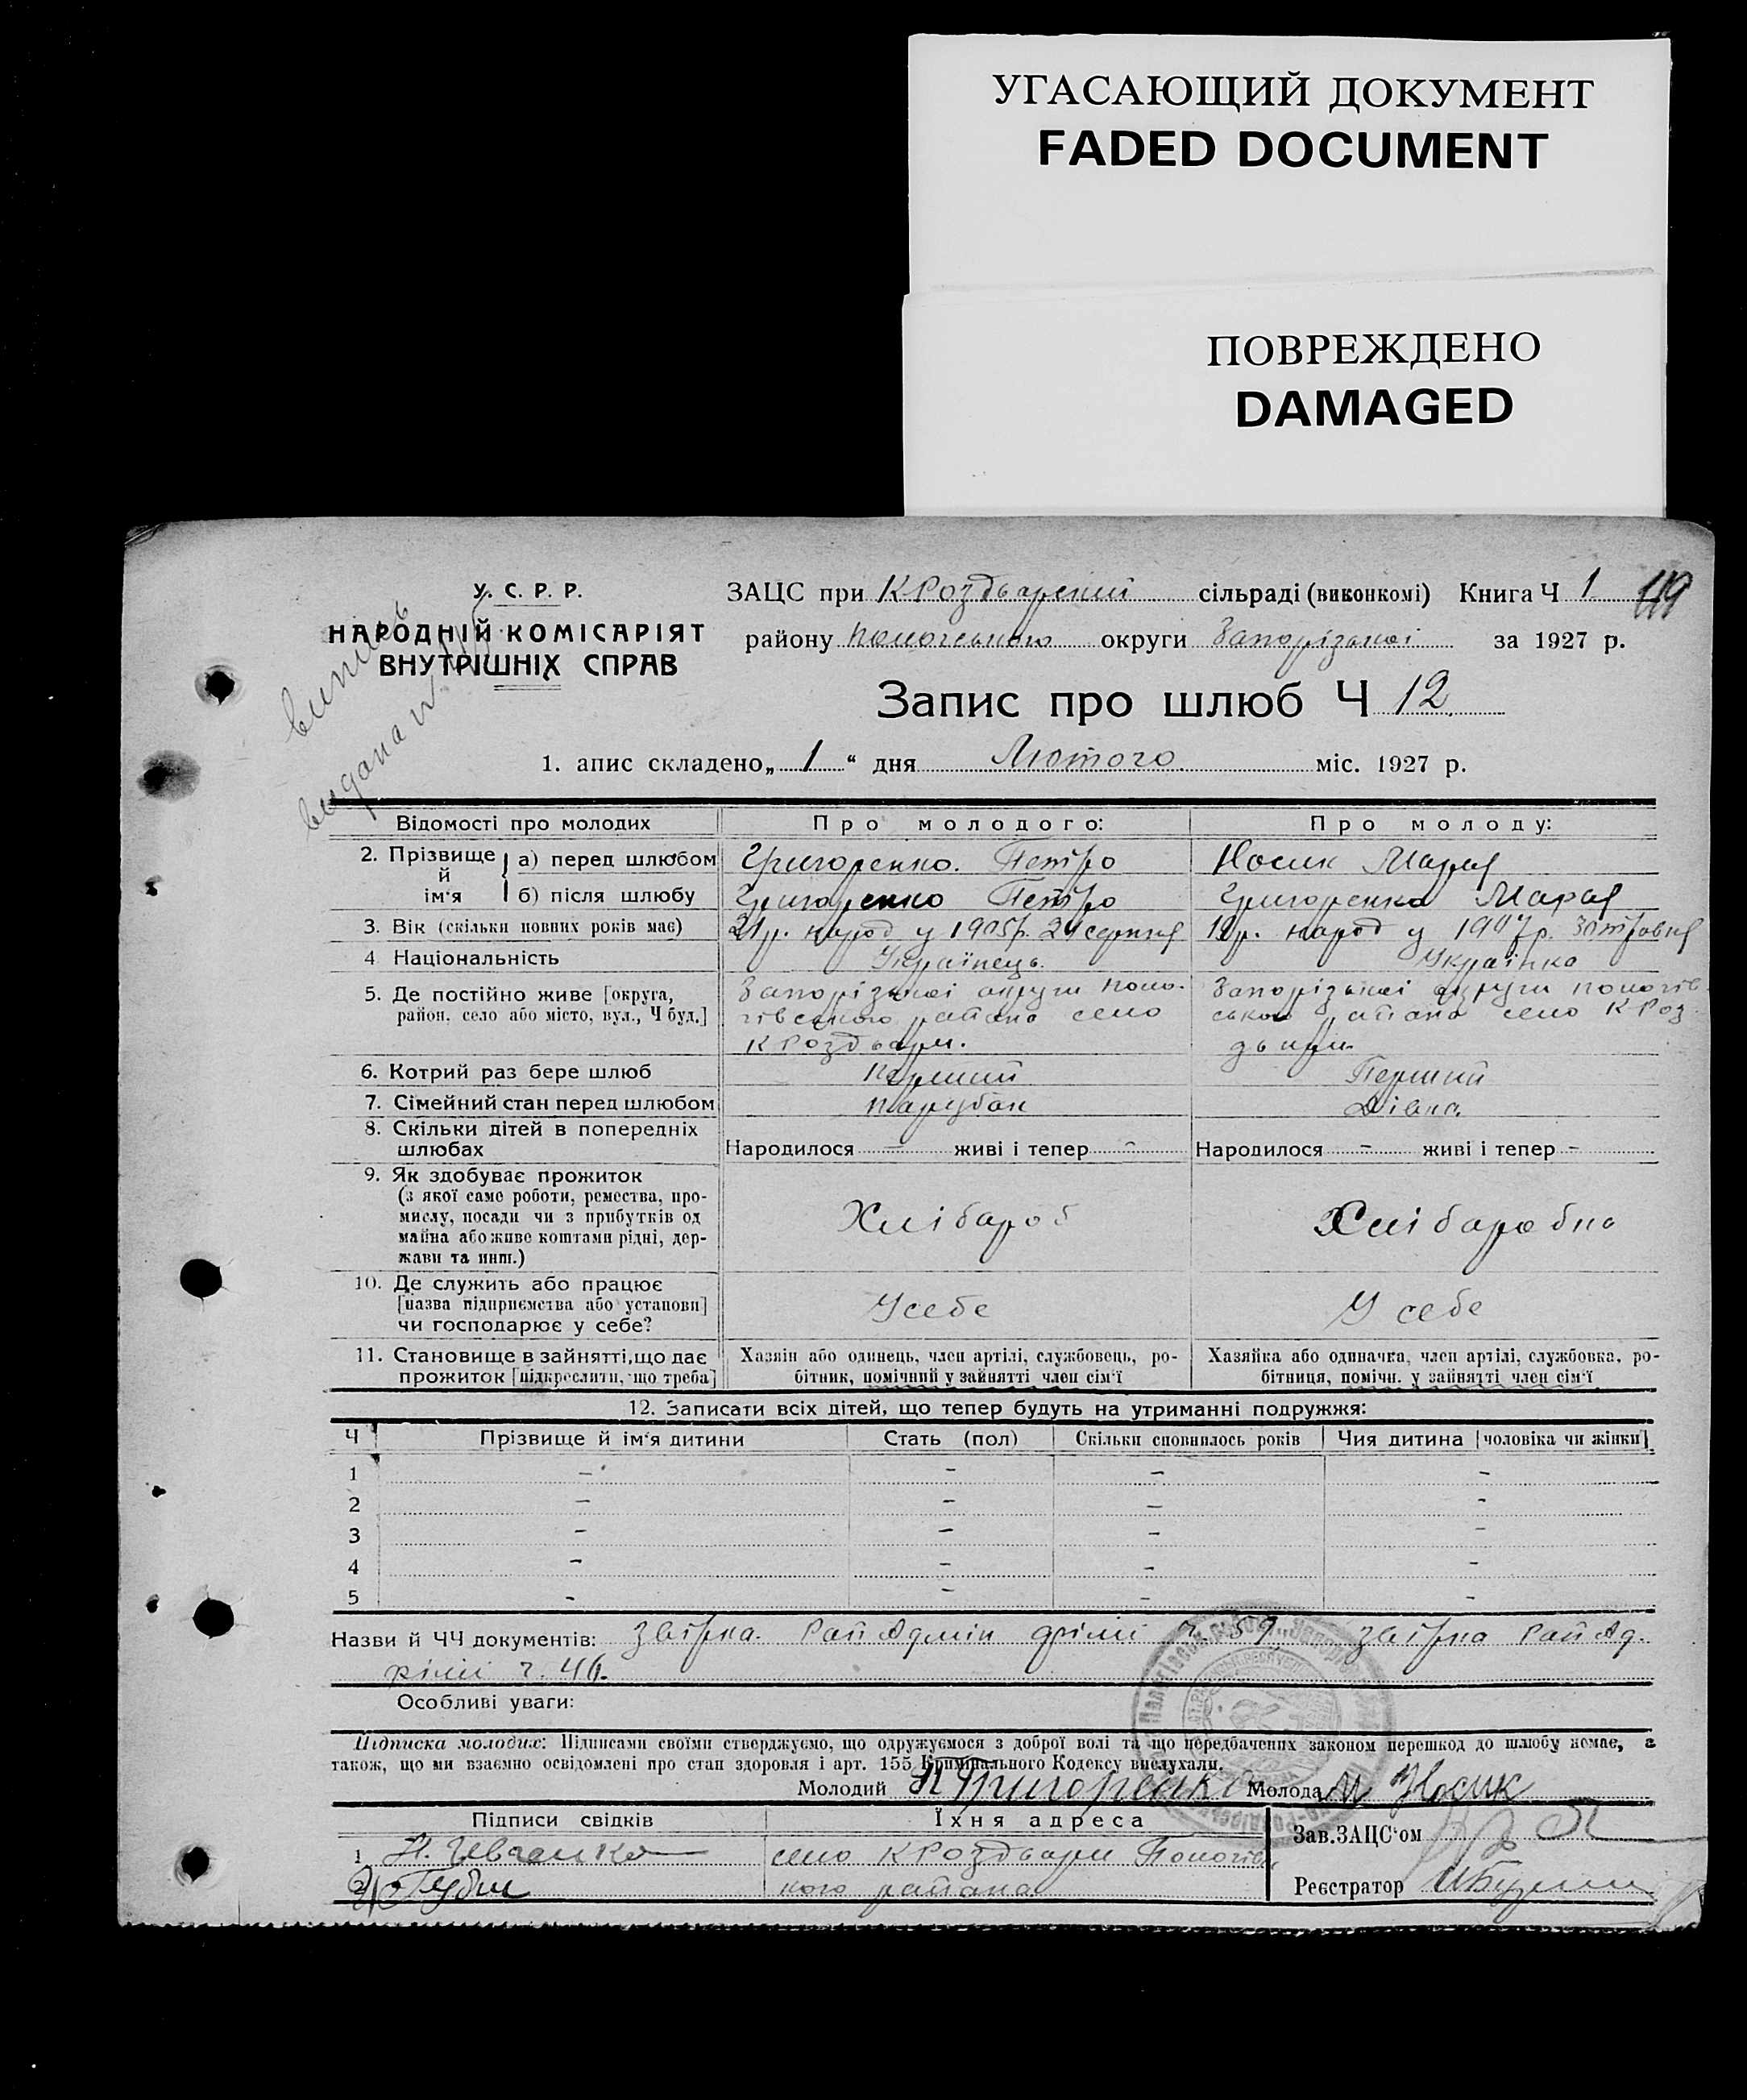 УГАСАЮЩИЙ ДОКУМЕНТ
FADED DOCUMENT
ПОВРЕЖДЕНО
DAMAGED
У. С. Р. Р.
НАРОДНІЙ КОМІСАРІЯТ
ВНУТРІШНІХ СПРАВ
ЗАЦС при К Роздорський сільраді (виконкомі) Книга Ч 1 119
району Пологівського округи Запорізької за 1927 р.
Запис про шлюб Ч 12
1. апис складено „ 1 “ дня Лютого міс. 1927 р.
Відомості про молодих Про молодого: Про молоду:
2. Прізвище й ім‘я а) перед шлюбом Григоренко. Петро Носик Марія
б) після шлюбу Григоренко Петро Григоренко Марія
3. Вік (скільки повних років має) 21 р. народ у 1905 р. 24 серпня 19 р. народ у 1907 р. 30 травня
4 Національність Українець. Українка
5. Де постійно живе [округа, район, село або місто, вул., Ч буд.] Запорізької округи Поло-
гівського района село
К Роздори.
Запорізької округи Пологів-
ського района село К Роз-
дори.
6. Котрий раз бере шлюб Перший Перший
7. Сімейний стан перед шлюбом Парубок Дівка.
8. Скільки дітей в попередніх
шлюбах Народилося – живі і тепер – Народилося – живі і тепер –
9. Як здобуває прожиток
(з якої саме роботи, ремества, про-
мислу, посади чи з прибутків од
майна або живе коштами рідні, дер-
жави та инш.)
Хлібороб Хлібаробка
10. Де служить або працює
[назва підприємства або установи]
чи господарює у себе?
У себе У себе
11. Становище в зайнятті, що дає
прожиток [підкреслити, що треба]
Хазяїн або одинець, член артілі, службовець, ро-
бітник, помічний у зайнятті член сім‘ї
Хазяйка або одиначка, член артілі, службовка, ро-
бітниця, помічн. у зайнятті член сім‘ї
12. Записати всіх дітей, що тепер будуть на утриманні подружжя:
Ч Прізвище й ім‘я дитини Стать (пол) Скільки сповнилось років Чия дитина [чоловіка чи жінки]
1 – – – –
2 – – – –
3 – – – –
4 – – – –
5 – – – –
Назви й ЧЧ документів: звірка РайАдмін ч. 59 звірка РайАд.
ч. 46.
Особливі уваги:
Підписка молодих: Підписами своїми стверджуємо, що одружуємося з доброї волі та що передбачених законом перешкод до шлюбу немає, а
також, що ми взаємно освідомлені про стан здоровля і арт. 155 Кримінального Кодексу вислухали.
Молодий П Григоренко Молода М Носик
Підписи свідків Їхня адреса Зав. ЗАЦС‘ом
1 село К Роздори Пологівс
2 кого района
Реєстратор